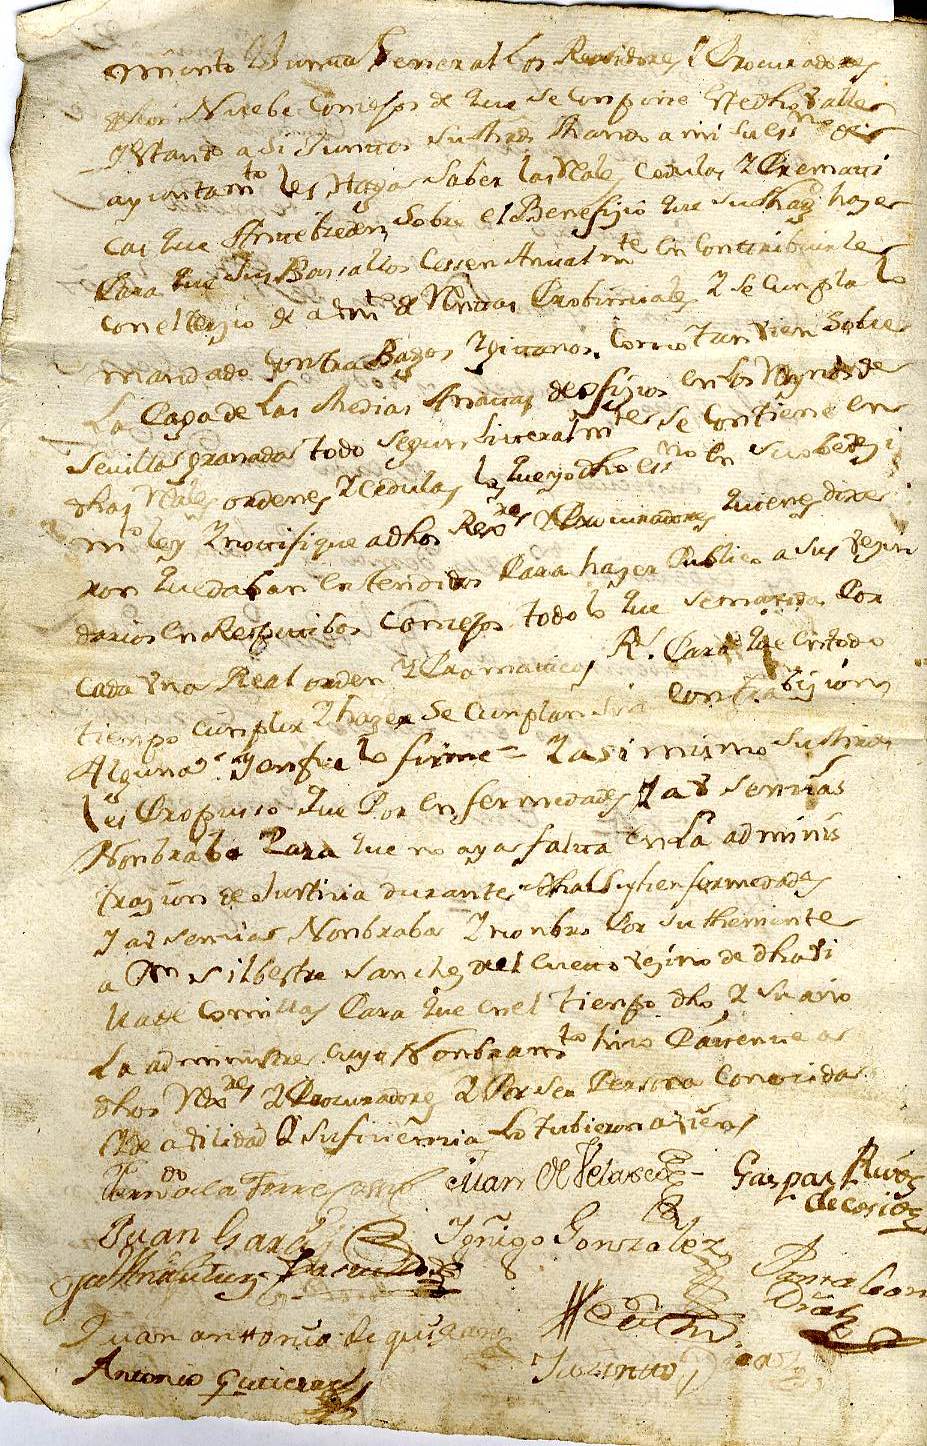 miento Junta General los Rexidores i Procuradores
de los Nuebe Conçejos de que se conpone este dho Valle
y estando asi Juntos su mrd mando a mi su essno de
ayuntamto les Haga Saber las Rles Cedulas y Prematti
cas que Antebeden Sobre el Benefiçio que su Magd haze
Para que sus Basallos Cessen Anualmte en Contribuirle
con el de admon de Rentas Probinciales y se cunpla lo
mandado contra Bagos y Gitanos, como tan vien sobre
La Paga de las Medias Anatas de ofiçios en los Reynos de
Sevilla y granada todo segun literalmte se contiene en
dhas Rles ordenes y Cedulas las que yo dho essno en su obedeçi
mto ley y notifique a dhos Rexres y Procuradores quienes dixe
ron quedaban entendidos Para hazer Publico a sus veçin
darios en Respectibos Conçejos todo lo que se manda Por
cada vna Real orden y Pramaticas Rl. Para que en todo
tiempo cunplir y hazer se Cunplan sin contrabiçion
Alguna. y en fee lo firme = y asimismo su mrd
les Propuso que Por enfermedades y avsencias
Nonbraba Para que no aya falta en la adminis
traçion de Justicia durante dhas enfermedades
y avsencias Nonbraba y nonbro Por su theniente
a Dn Silbestre Sanchez de el Cueto vezino de dha vi
lla de Comillas Para que en el tienpo dho y su año
La administre, cuyo Nonbramto hiço Patente a
dhos Rexres y Procuradores y Por ser Persona Conocida
de abilidad y sufiçiençia lo tubieron a vien
Ferndo de la Torre Juan de Velasco Gaspar Ruiz
de cosio
Juan Garcia Yñigo Gonzalez
Pantaleon
Diaz
Juan anttonio de quijano
Antonio Gutierrez Jazinto Diaz